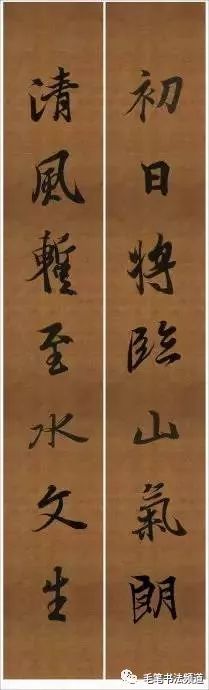 初日將臨山氣朗
清風暫至水文生
毛笔书法频道